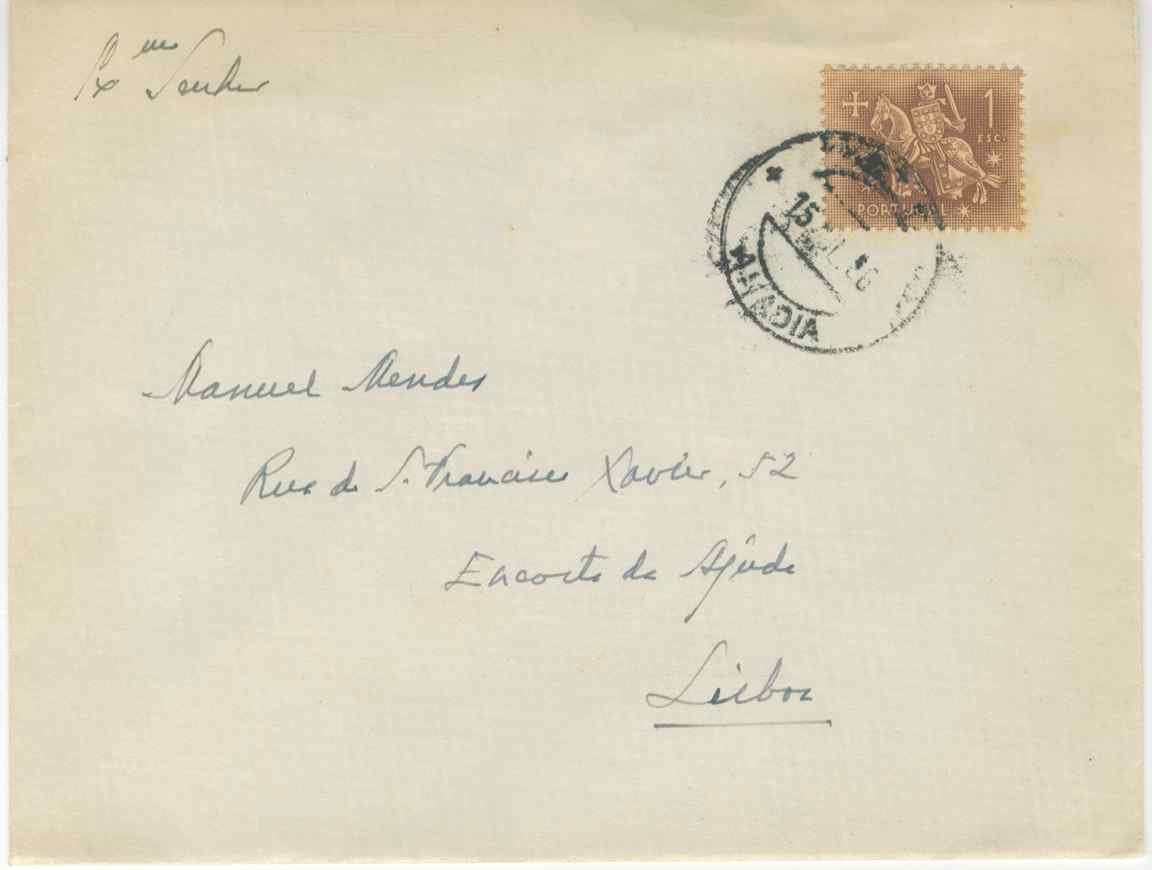 Exmo Senhor
1
ESC.
PORTUGAL
15 JUL. 56
ANADIA
Manuel Mendes
Rua de S. Francisco Xavier, 52
Encosta da Ajuda
Lisboa